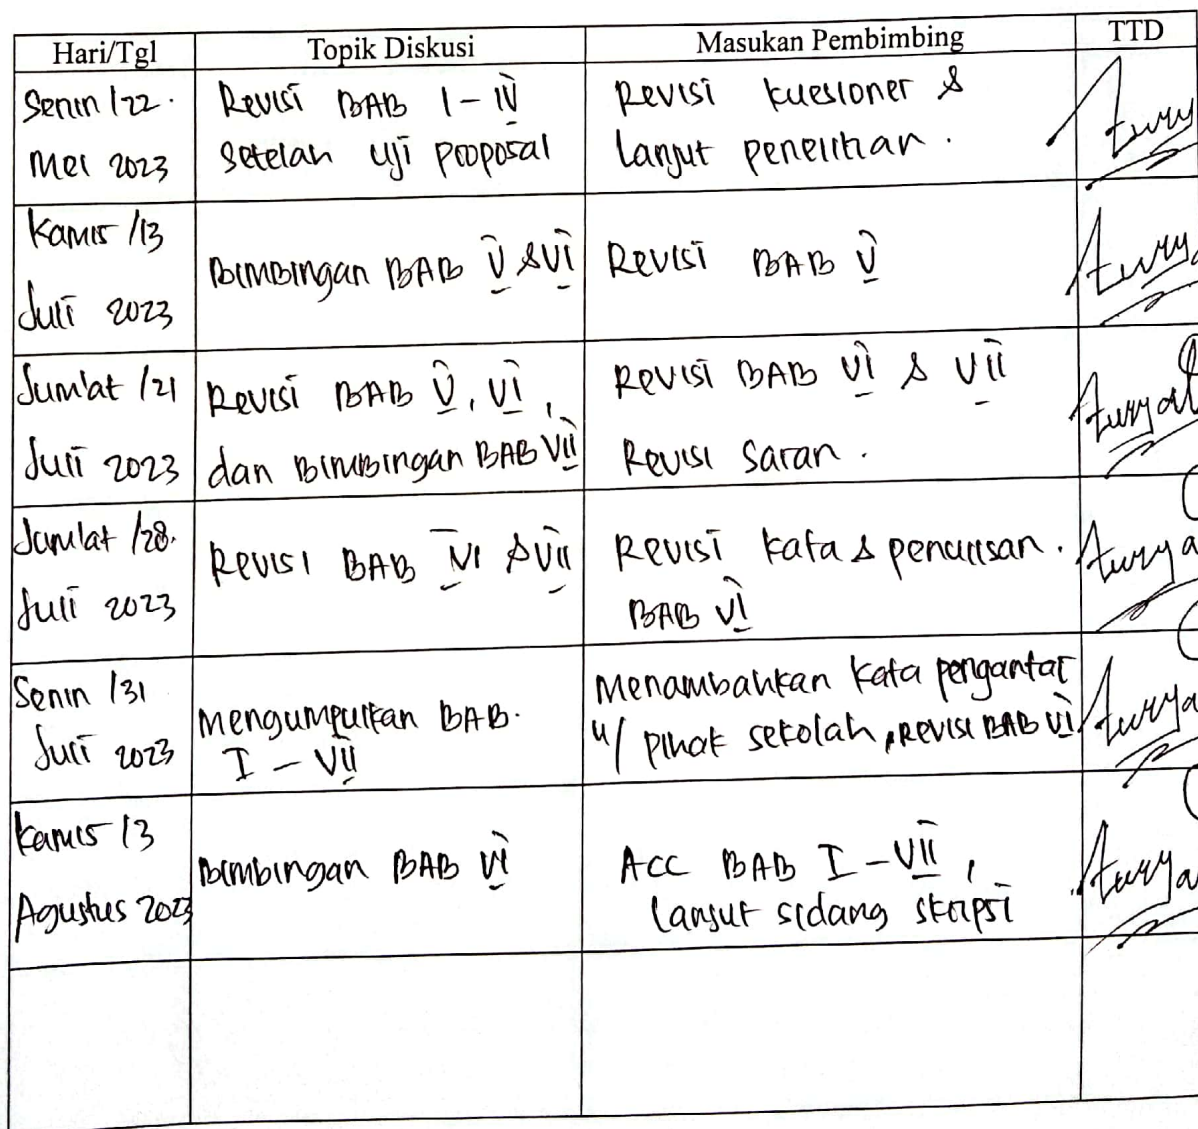 Hari/Tgl Topik Diskusi Masukan Pembimbing TTD
Senin /22.
Mei 2023
Revisi BAB I - IV
setelah uji proposal
Revisi kuesioner &
lanjut penelitian.
Kamis /13
Juli 2023
Bimbingan BAB V & VI
Revisi BAB V
Jum'at /21
Juli 2023
Revisi BAB V, VI,
dan Bimbingan BAB VII
Revisi BAB VI & VII
Revisi saran.
Jum'at /28.
Juli 2023
Revisi BAB VI & VII
Revisi kata & penulisan.
BAB VI
Senin /31
Juli 2023
Mengumpulkan BAB.
I - VII
Menambahkan kata pengantar
u/ pihak sekolah, Revisi BAB VI
Kamis /3
Agustus 2023
Bimbingan BAB VI
Acc BAB I - VII,
lanjut sidang skripsi